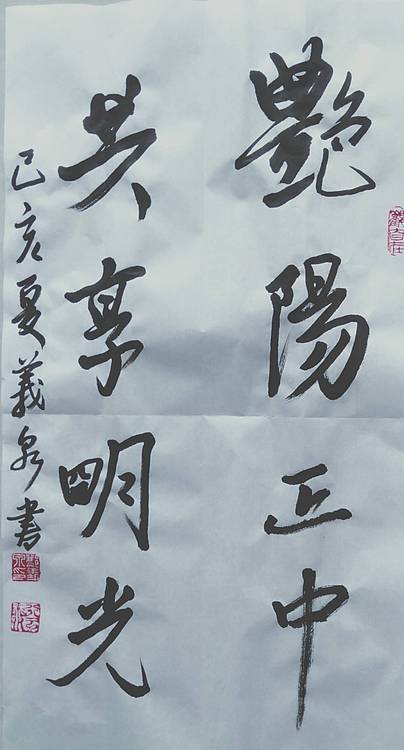 艷陽正中
共享明光
己亥夏義泉書